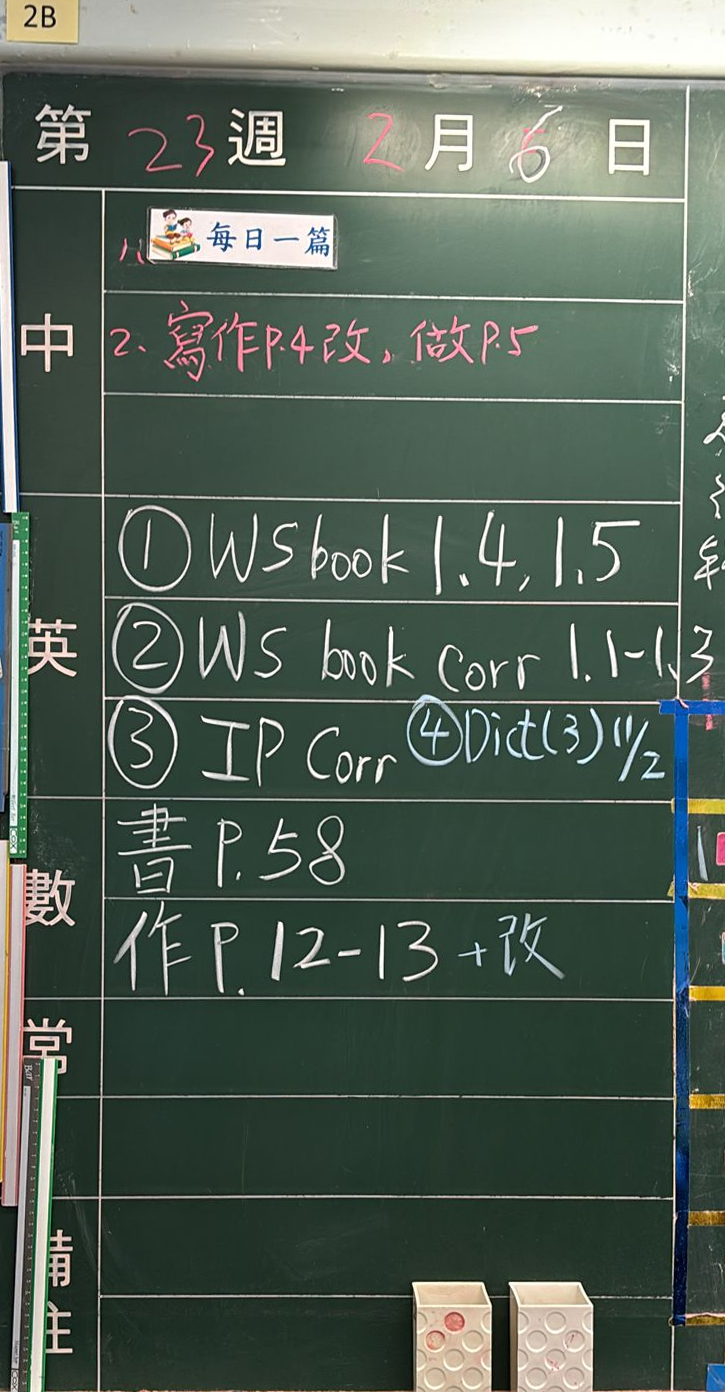 2B
第 23 週 2 月 6 日
中
1. 每日一篇
2. 寫作P.4改, 做P.5
英
① WS book 1.4, 1.5
② WS book Corr 1.1-1.3
③ IP Corr ④Dict(3) 11/2
數
書 P.58
作 P. 12-13 +改
常
備註